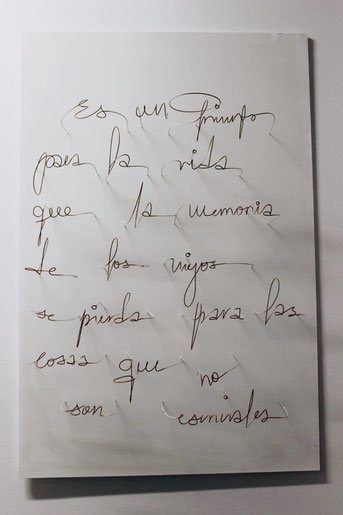 Es un triunfo
para la vida
que la memoria
de los viejos
se pierda para las
cosas que no
son esenciales